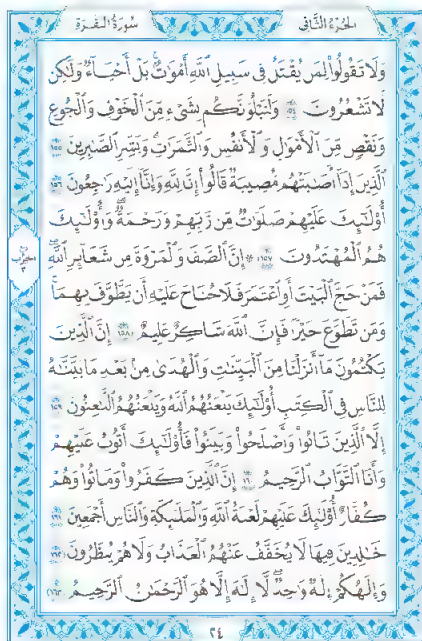 الجزء الثاني
سورة البقرة
وَلَا تَقُولُوا۟ لِمَن يُقْتَلُ فِى سَبِيلِ ٱللَّهِ أَمْوَٰتٌۢ بَلْ أَحْيَآءٌ وَلَـٰكِن
لَّا تَشْعُرُونَ ١٥٤ وَلَنَبْلُوَنَّكُم بِشَىْءٍ مِّنَ ٱلْخَوْفِ وَٱلْجُوعِ
وَنَقْصٍ مِّنَ ٱلْأَمْوَٰلِ وَٱلْأَنفُسِ وَٱلثَّمَرَٰتِ وَبَشِّرِ ٱلصَّـٰبِرِينَ ١٥٥
ٱلَّذِينَ إِذَآ أَصَـٰبَتْهُم مُّصِيبَةٌ قَالُوٓا۟ إِنَّا لِلَّهِ وَإِنَّآ إِلَيْهِ رَٰجِعُونَ ١٥٦
أُو۟لَـٰٓئِكَ عَلَيْهِمْ صَلَوَٰتٌ مِّن رَّبِّهِمْ وَرَحْمَةٌ وَأُو۟لَـٰٓئِكَ
هُمُ ٱلْمُهْتَدُونَ ١٥٧ ۞ إِنَّ ٱلصَّفَا وَٱلْمَرْوَةَ مِن شَعَآئِرِ ٱللَّهِ
فَمَنْ حَجَّ ٱلْبَيْتَ أَوِ ٱعْتَمَرَ فَلَا جُنَاحَ عَلَيْهِ أَن يَطَّوَّفَ بِهِمَا
وَمَن تَطَوَّعَ خَيْرًا فَإِنَّ ٱللَّهَ شَاكِرٌ عَلِيمٌ ١٥٨ إِنَّ ٱلَّذِينَ
يَكْتُمُونَ مَآ أَنزَلْنَا مِنَ ٱلْبَيِّنَـٰتِ وَٱلْهُدَىٰ مِنۢ بَعْدِ مَا بَيَّنَّـٰهُ
لِلنَّاسِ فِى ٱلْكِتَـٰبِ أُو۟لَـٰٓئِكَ يَلْعَنُهُمُ ٱللَّهُ وَيَلْعَنُهُمُ ٱللَّـٰعِنُونَ ١٥٩
إِلَّا ٱلَّذِينَ تَابُوا۟ وَأَصْلَحُوا۟ وَبَيَّنُوا۟ فَأُو۟لَـٰٓئِكَ أَتُوبُ عَلَيْهِمْ
وَأَنَا ٱلتَّوَّابُ ٱلرَّحِيمُ ١٦٠ إِنَّ ٱلَّذِينَ كَفَرُوا۟ وَمَاتُوا۟ وَهُمْ
كُفَّارٌ أُو۟لَـٰٓئِكَ عَلَيْهِمْ لَعْنَةُ ٱللَّهِ وَٱلْمَلَـٰٓئِكَةِ وَٱلنَّاسِ أَجْمَعِينَ ١٦١
خَـٰلِدِينَ فِيهَا لَا يُخَفَّفُ عَنْهُمُ ٱلْعَذَابُ وَلَا هُمْ يُنظَرُونَ ١٦٢
وَإِلَـٰهُكُمْ إِلَـٰهٌ وَٰحِدٌ لَّآ إِلَـٰهَ إِلَّا هُوَ ٱلرَّحْمَـٰنُ ٱلرَّحِيمُ ١٦٣
٢٤